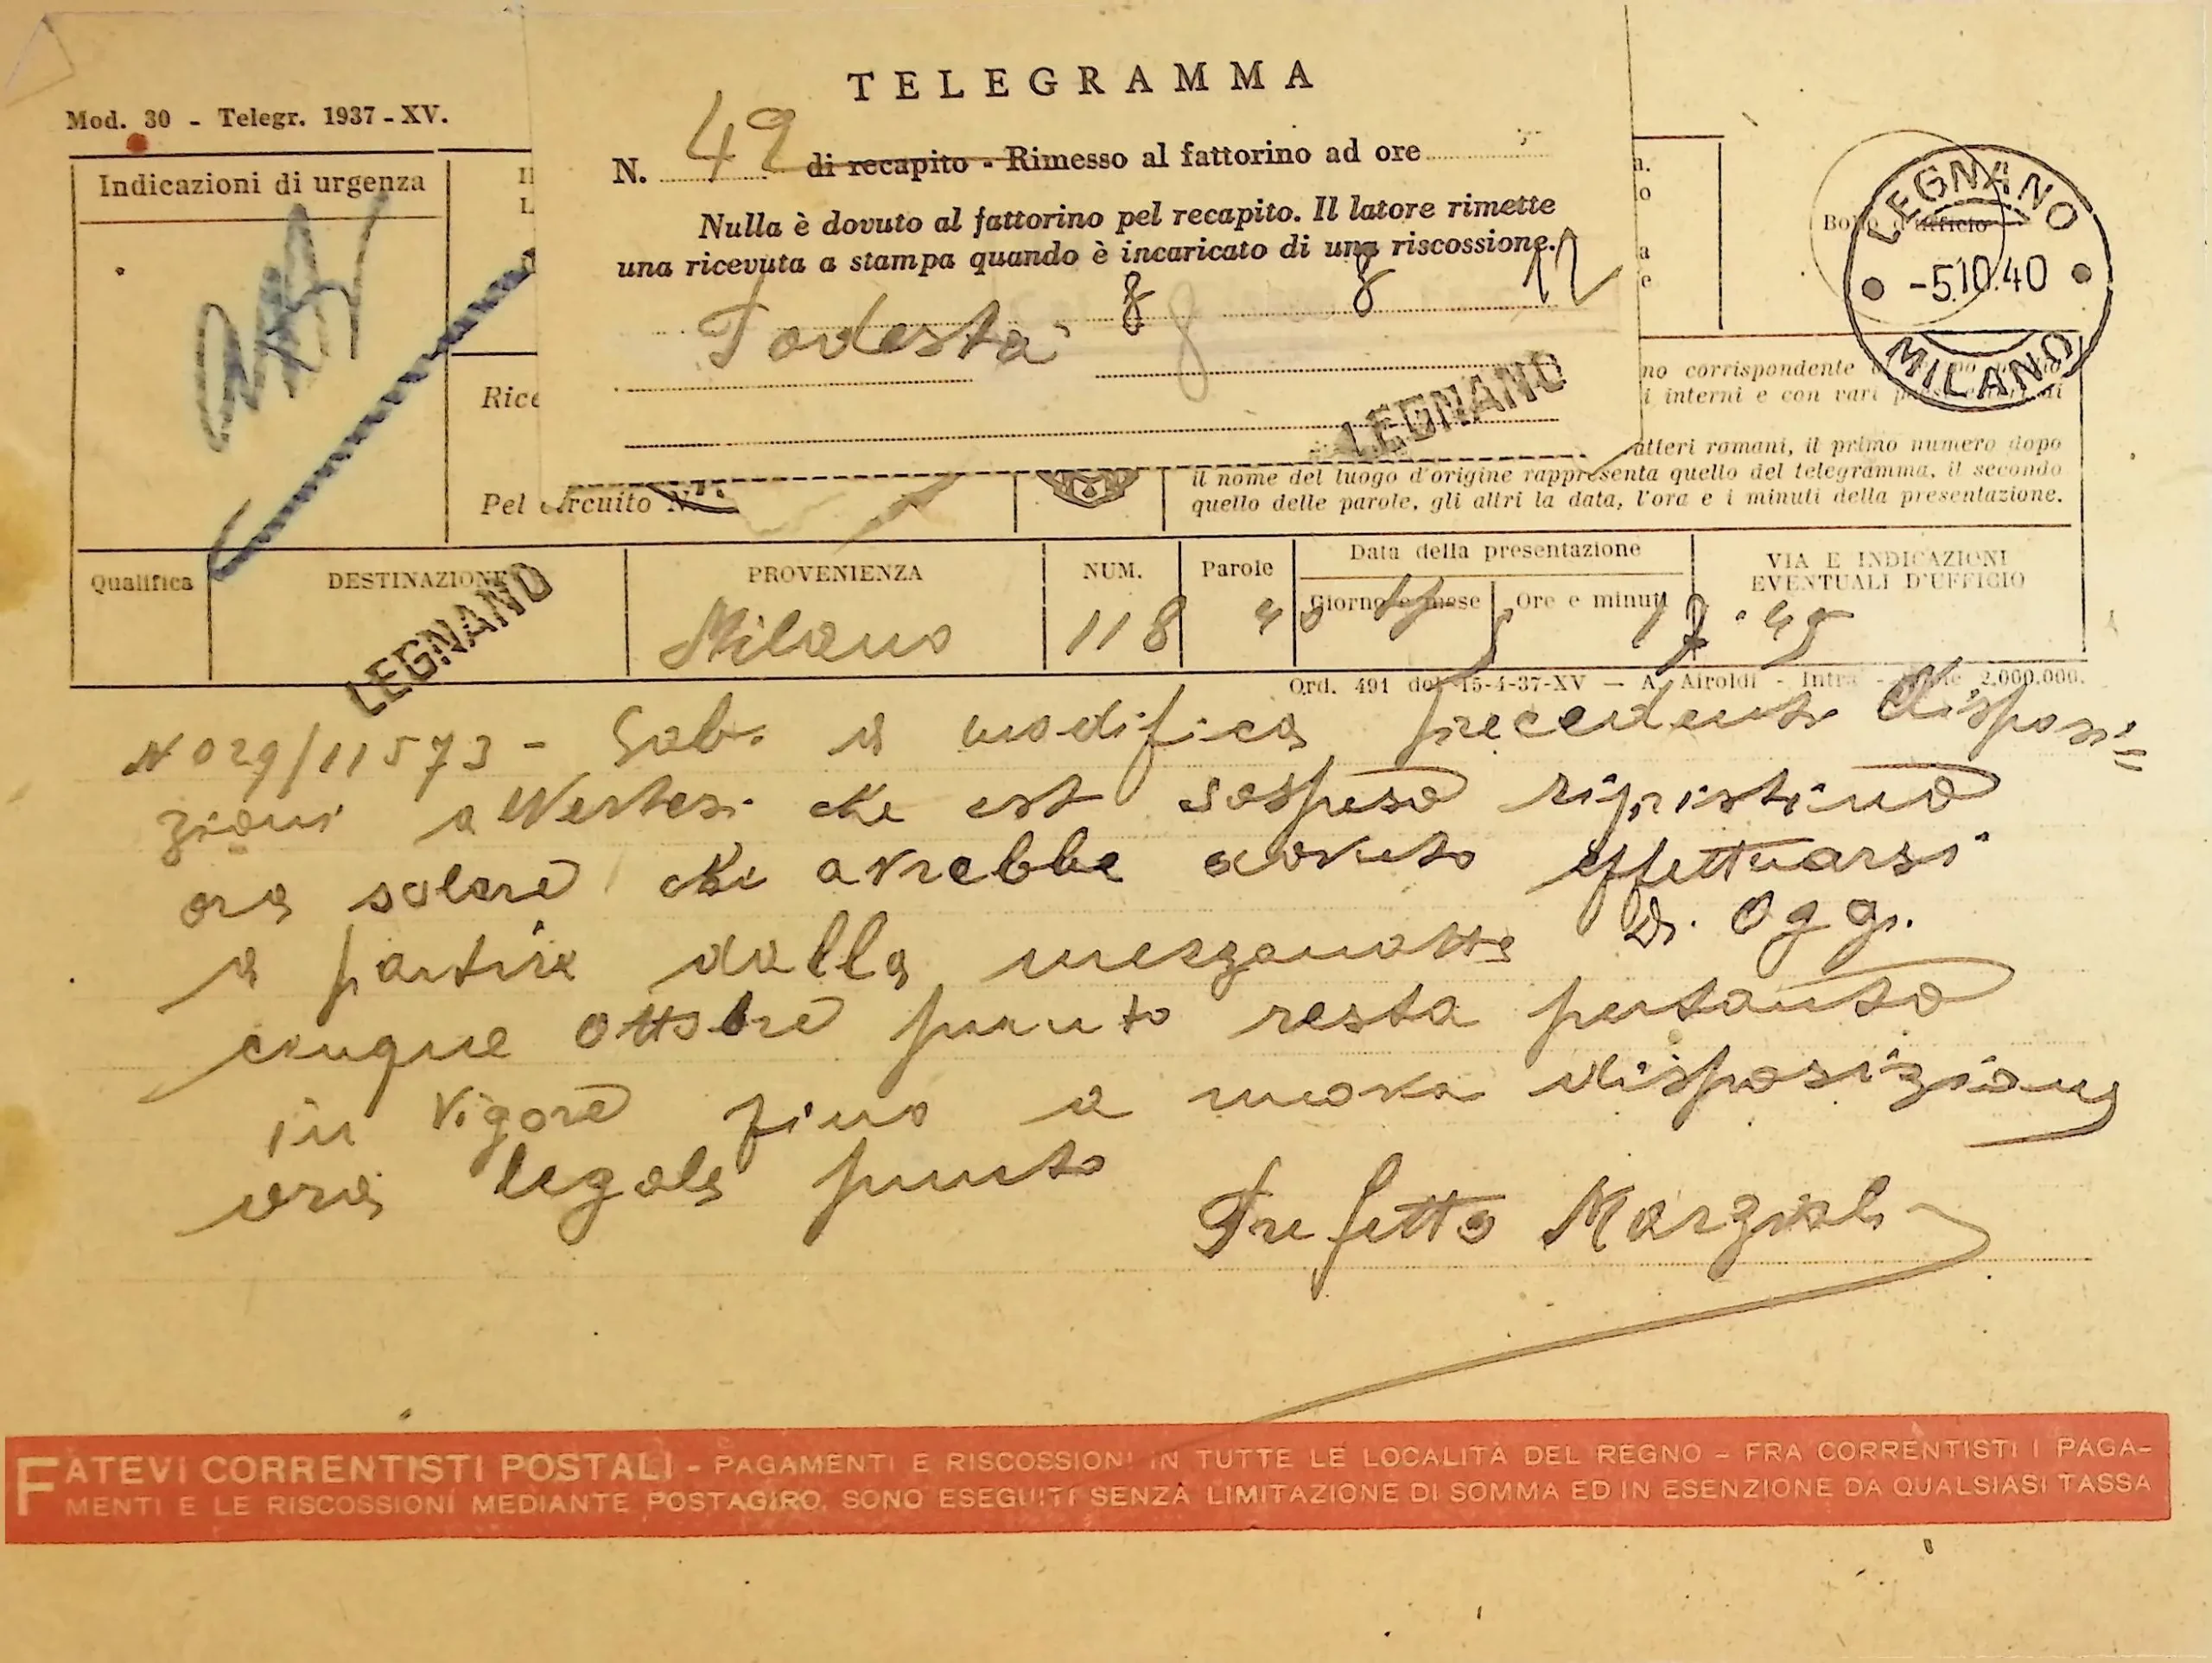 TELEGRAMMA
Mod. 30 - Telegr. 1937 - XV.
Indicazioni di urgenza
N. 49 di recapito - Rimesso al fattorino ad ore
Nulla è dovuto al fattorino pel recapito. Il latore rimette
una ricevuta a stampa quando è incaricato di una riscossione.
8 8 12
Podestà
LEGNANO
Bollo d'ufficio
LEGNANO
-5.10.40
MILANO
no corrispondente
i interni e con vari
Rice
atteri romani, il primo numero dopo
il nome del luogo d'origine rappresenta quello del telegramma, il secondo
quello delle parole, gli altri la data, l'ora e i minuti della presentazione.
Pel circuito N.
Qualifica
DESTINAZIONE
PROVENIENZA
NUM.
Parole
Data della presentazione
Giorno e mese
Ore e minuti
VIA E INDICAZIONI
EVENTUALI D'UFFICIO
LEGNANO
Milano
118
40
5
17.45
Ord. 491 del 15-4-37-XV — A. Airoldi - Intra - 2.000.000.
N 029/11573 - Gab. a modifica precedenti disposi=
zioni avvertesi che est sospeso ripristino
ora solare che avrebbe dovuto effettuarsi
a partire dalla mezzanotte di oggi
cinque ottobre punto resta pertanto
in vigore fino a nuova disposizione
ora legale punto
Prefetto Marziali
FATEVI CORRENTISTI POSTALI - PAGAMENTI E RISCOSSIONI IN TUTTE LE LOCALITÀ DEL REGNO - FRA CORRENTISTI I PAGA-
MENTI E LE RISCOSSIONI MEDIANTE POSTAGIRO, SONO ESEGUITI SENZA LIMITAZIONE DI SOMMA ED IN ESENZIONE DA QUALSIASI TASSA